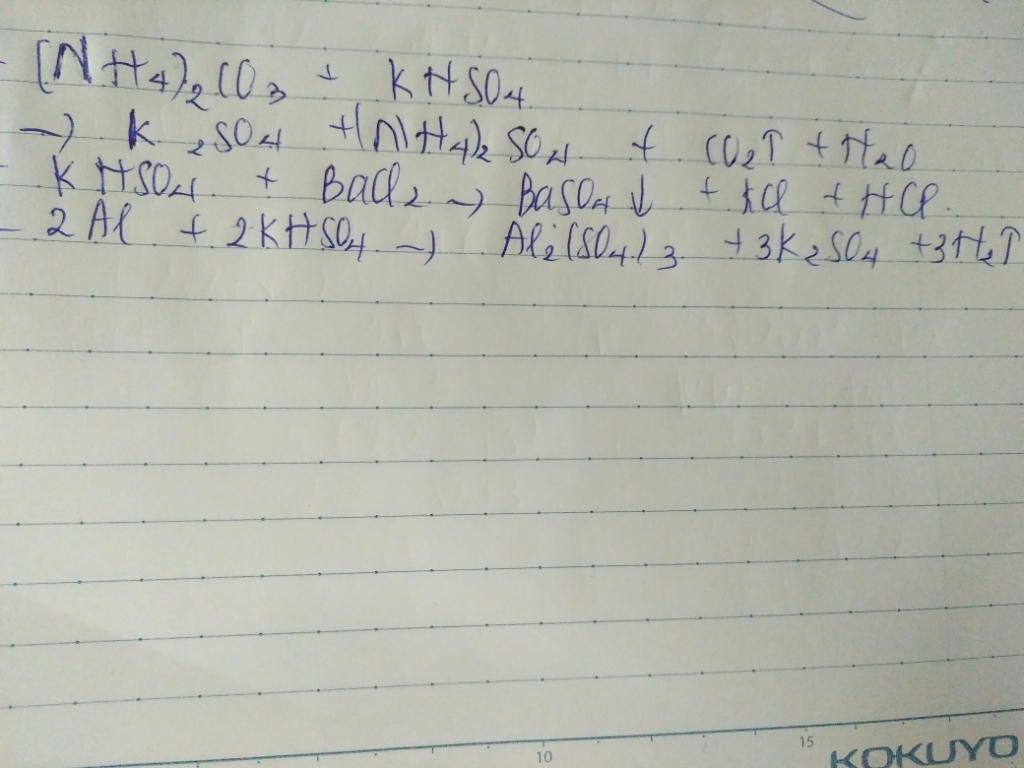 - (NH4)2CO3 + KHSO4
→ K2SO4 + (NH4)2SO4 + CO2↑ + H2O
- KHSO4 + BaCl2 → BaSO4↓ + KCl + HCl.
- 2Al + 2KHSO4 → Al2(SO4)3 + 3K2SO4 + 3H2↑
10
15
KOKUYO